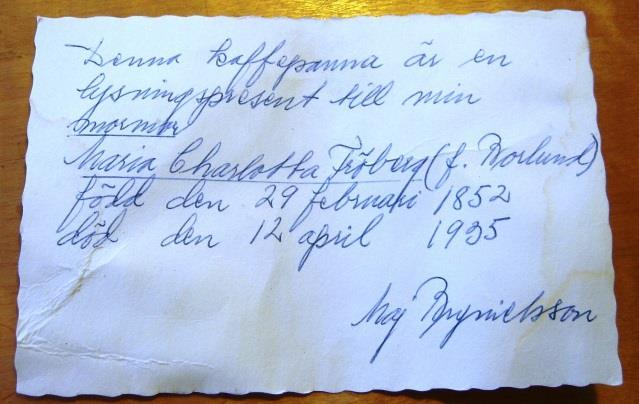 Denna kaffepanna är en
lysningspresent till min
mormor
Maria Charlotta Fröberg (f. Borlund)
född den 29 februari 1852
död den 12 april 1935
Maj Brynielsson